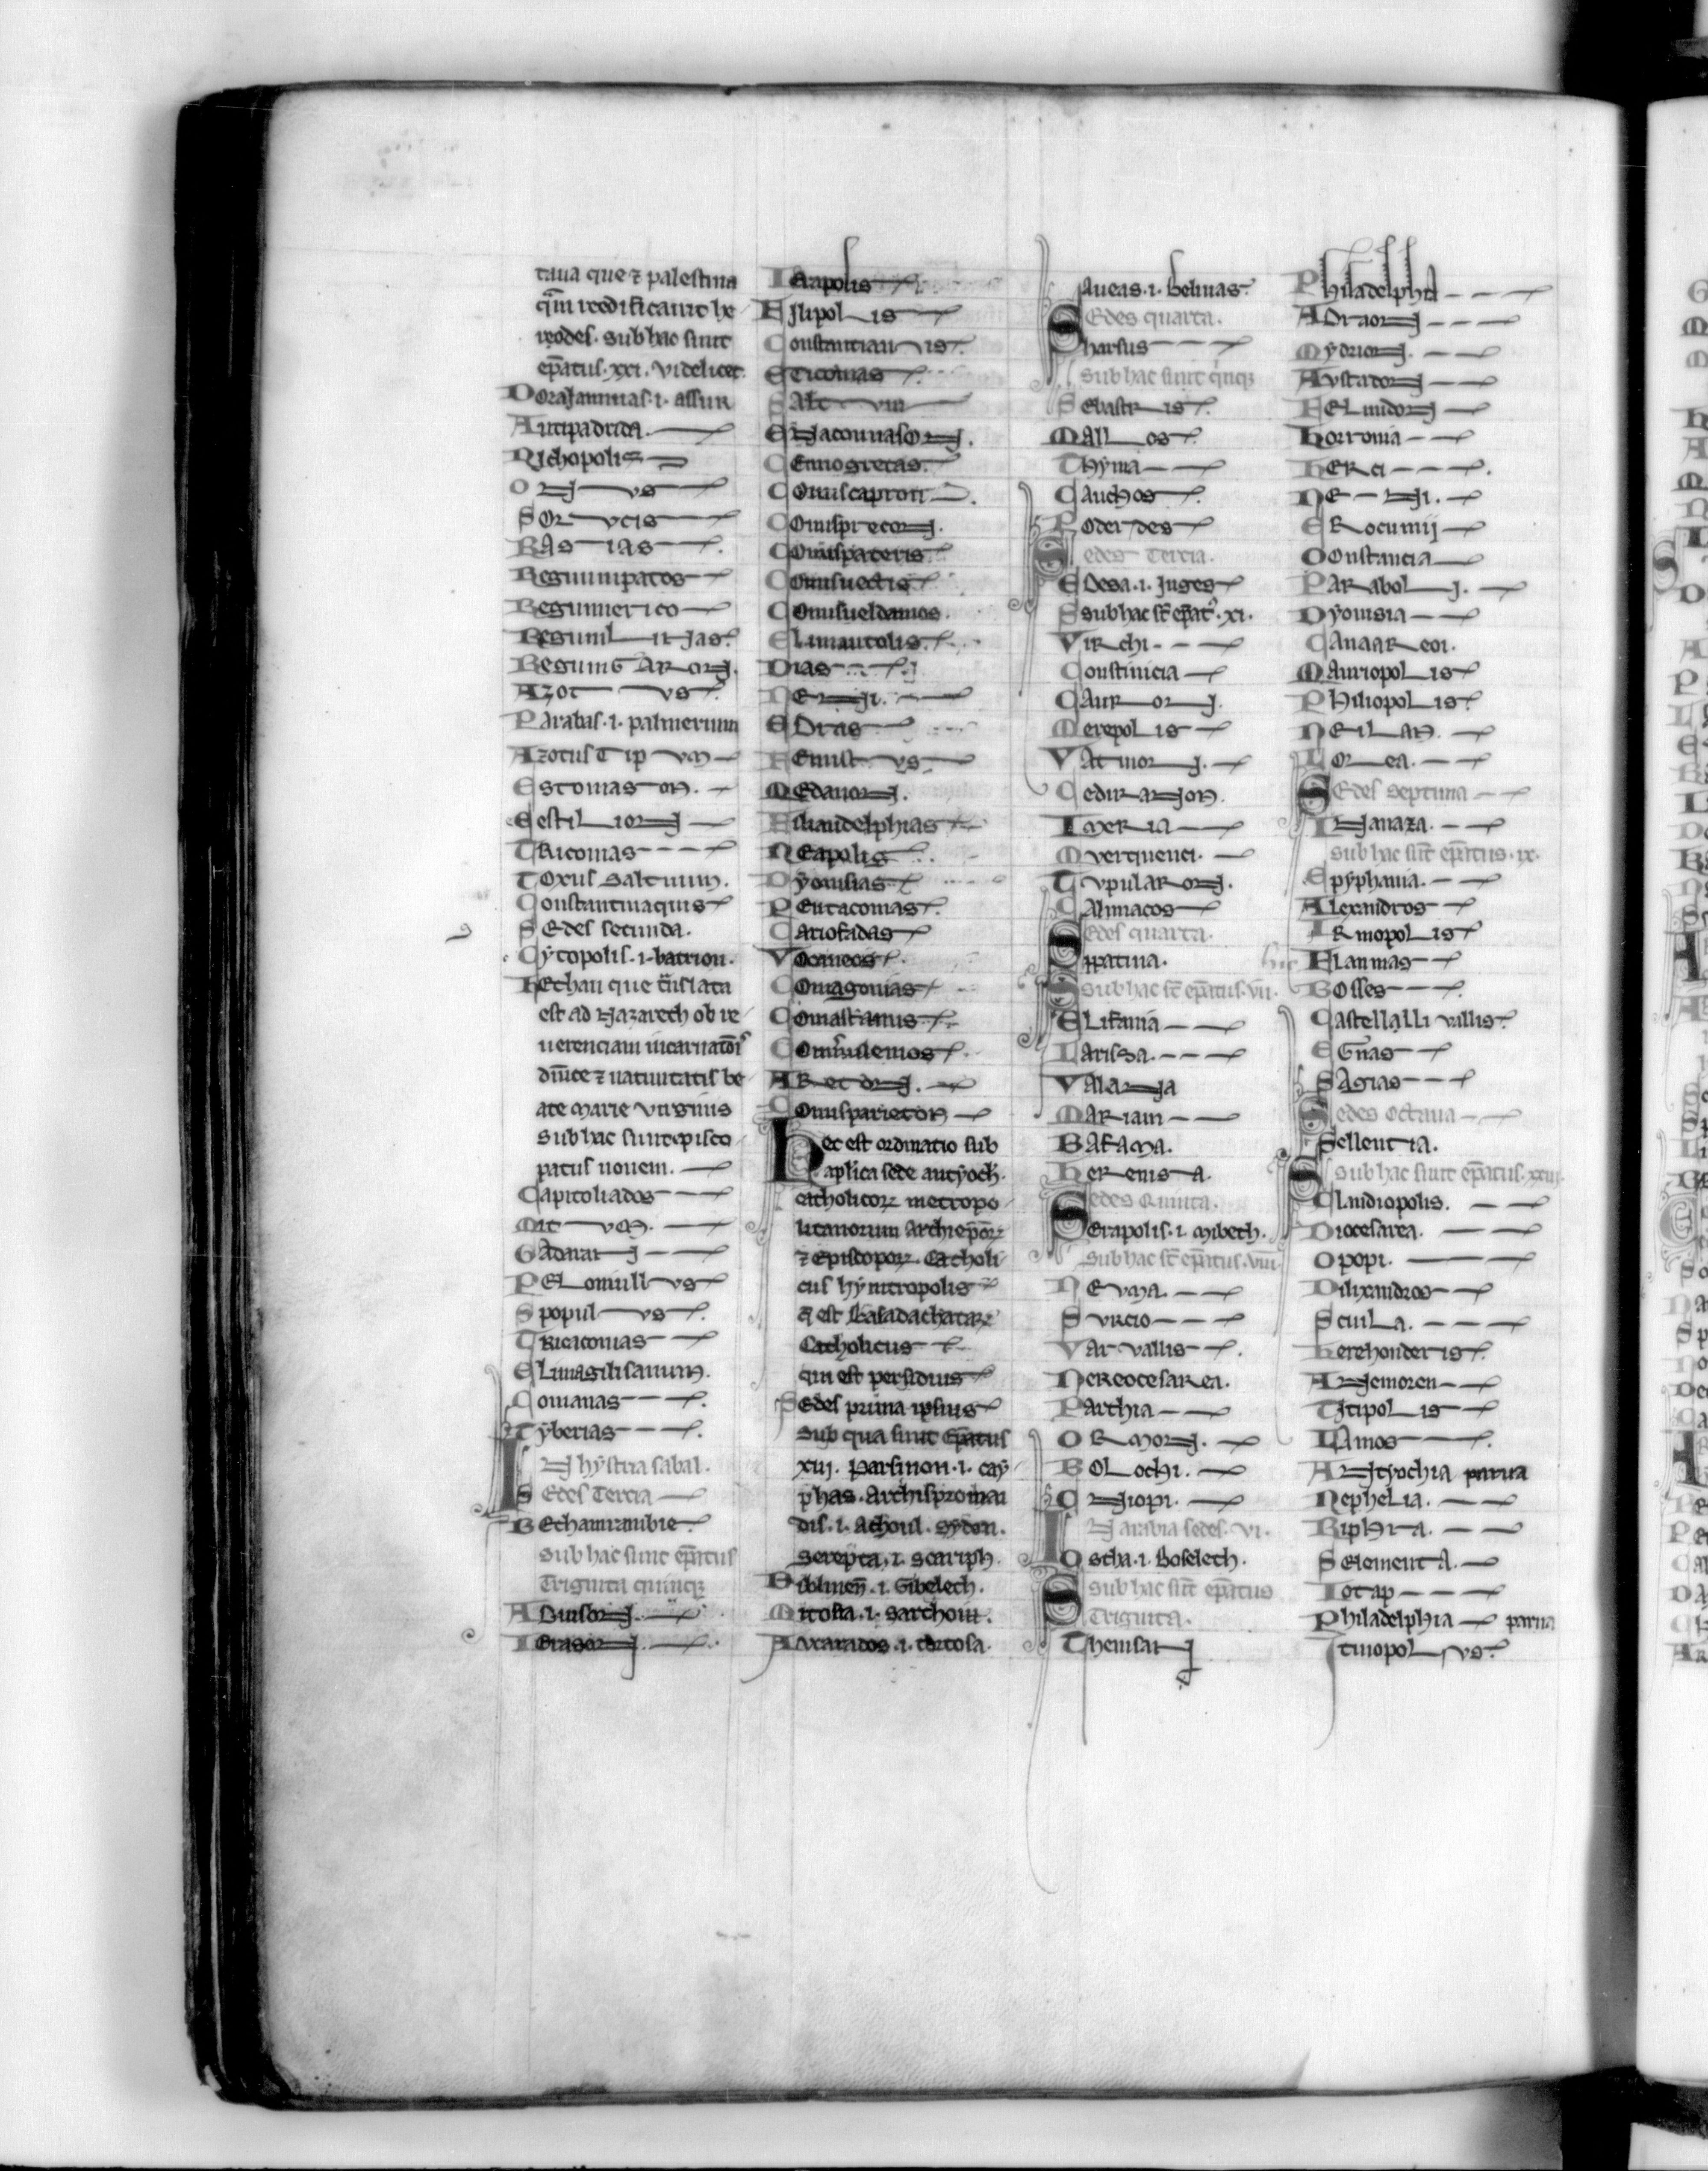 taua que ⁊ palestina
q̄m reedificauit he
rodes. sub hac sunt
ep̄atus. xxi. videlicet.
Dorajamnias. i. assur
Antipadrida.
Nichopolis
Sorucis
Bas ias.
Regiumpatos
Regiumerico
Regiumliujas.
Regiumgaron.
Azotus.
Parabas. i. palmerium
Azotus Tip um
Estomason.
Estilion
Tricomas
Toxus Saltuum.
Constantinaquis
Sedes secunda.
Cytopolis. i. batrion.
Hechan que t̄nslata
est ad Nazareth ob re
uerenciam incarnatōis
diuīce ⁊ natiuitatis be
ate Marie virginis
Sub hac sunt episco
patus nouem.
Capitoliados
Mit um.
Gadaraj
Pelomullus
Spopulus.
Tricacomas
Climagilisanum.
Comanas
Tyberias
IN hystria sabal.
Sedes Tercia
Bethamrambie.
Sub hac sunt ep̄atus
Triginta quinq̄
Aduison.
Ierason.
Ierapolis
Eslipolis
Constancianis.
Eticomas.
Saltum
Enaconnason.
Cennogrecas.
Comiscapron.
Comisprecon.
Comispateris.
Comisuectis
Comisueldamos.
Climautolis.
Dias
Neri.
Edras
Femistus
Medanon.
Filiandelphias
Neapolis
Dyonisias
Pentacomas.
Cariofadas
Vocaneos.
Comagonias
Comastanus.
Comrudemos
Comispariecon
Hec est ordinatio sub
aplica sede antyoch.
catholicoꝝ metropo
litanorum archiep̄oꝝ
⁊ Episcopoꝝ. Catholi
cus hymtropolis
q̄ est Bafadachataꝝ
Catholicus
qui est persidius
Sedes prima ipsius
Sub qua sunt ep̄atus
xiij. Parsinon. i. cay
phas. Archispromai
dis. i. Achoul. Sydon.
Serepta. i. scariph.
Biblinen̄. i. Gibelech.
Mitosta. i. sarchoui.
Aurarados. i. tortosa.
paueas. i. Belinas.
Sedes quarta.
Tharsus
Sub hac sunt quinq̄
Sebastis.
Mallos.
Thyma
Cauchos.
Poderdes
Sedes Tercia.
Edesa. i. Iuges
Ssub hac st̄ ep̄at⁹. xi.
Virchi.
Constinicia
Cauron.
Merepolis
Vatmorj.
Cedimarjon.
Imeria
Mverquenci.
Tupularon.
Calmacos
Sedes quarta.
Appatina.
Sub hac st̄ ep̄atus. vii.
Elifania
Larissa.
Valanja
Mariam
Bafama.
Herenista.
Sedes Quinta.
Serapolis. i. Mibech.
Sub hac st̄ ep̄atus. viii
Neuma.
Surcio
Var vallis.
Nereocesarea.
Parchia
Ormon.
Bolochi.
Cniopi.
IN arabia sedes. vi.
Ostha. i. Boselech.
Sub hac sūt ep̄atus
Triginta.
Themsarj
Philadelphia
Adraon
Mydrion.
Austadon
Felmidon
Horronia
Herci
Neri.
Erocumij
Constancia
Parabolj.
Dyonisia
Canaareoi.
Mauriopolis
Philiopolis.
Neilam.
Lorea.
Sedes Septima
Inanaza.
Sub hac sūt ep̄atus. ix.
Epyphania.
Alexandros
Irmopolis
Flanmas
Bosses
Castellalli vallis.
Egnas
Sagias
Sedes Octaua
Sellentia.
Sub hac sunt ep̄atus. xxiii.
Claudiopolis.
Diocesarea.
Opopi.
Dilixandros
Sciula.
Herehonderis.
Anemoren
Titipolis
Lamos
Antyochia parua
Nephelia.
Riphira.
Selementa.
Iotap
Philadelphia parua
Itinopolus.